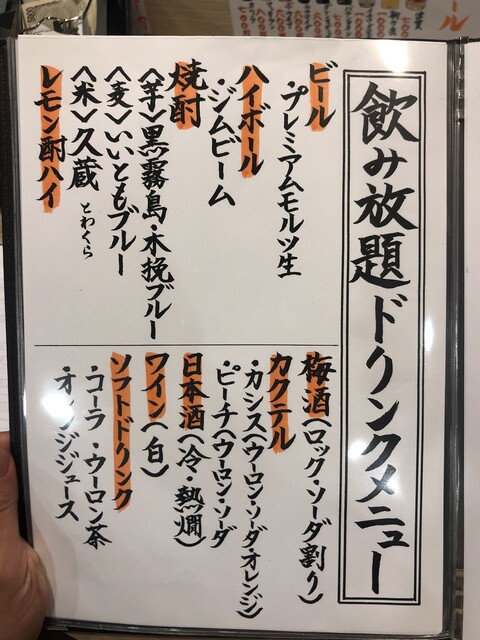 飲み放題ドリンクメニュー
ビール
・プレミアムモルツ生
ハイボール
・ジムビーム
焼酎
〈芋〉黒霧島・木挽ブルー
〈麦〉いいともブルー
〈米〉久蔵 とわくら
レモン酎ハイ
梅酒(ロック・ソーダ割り)
カクテル
・カシス(ウーロン・ソーダ・オレンジ)
・ピーチ(ウーロン・ソーダ
日本酒(冷・熱燗)
ワイン(白)
ソフトドリンク
・コーラ・ウーロン茶
・オレンジジュース